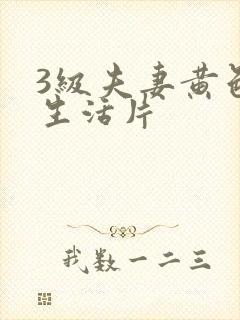 3级夫妻黄色
生活片
我数一二三